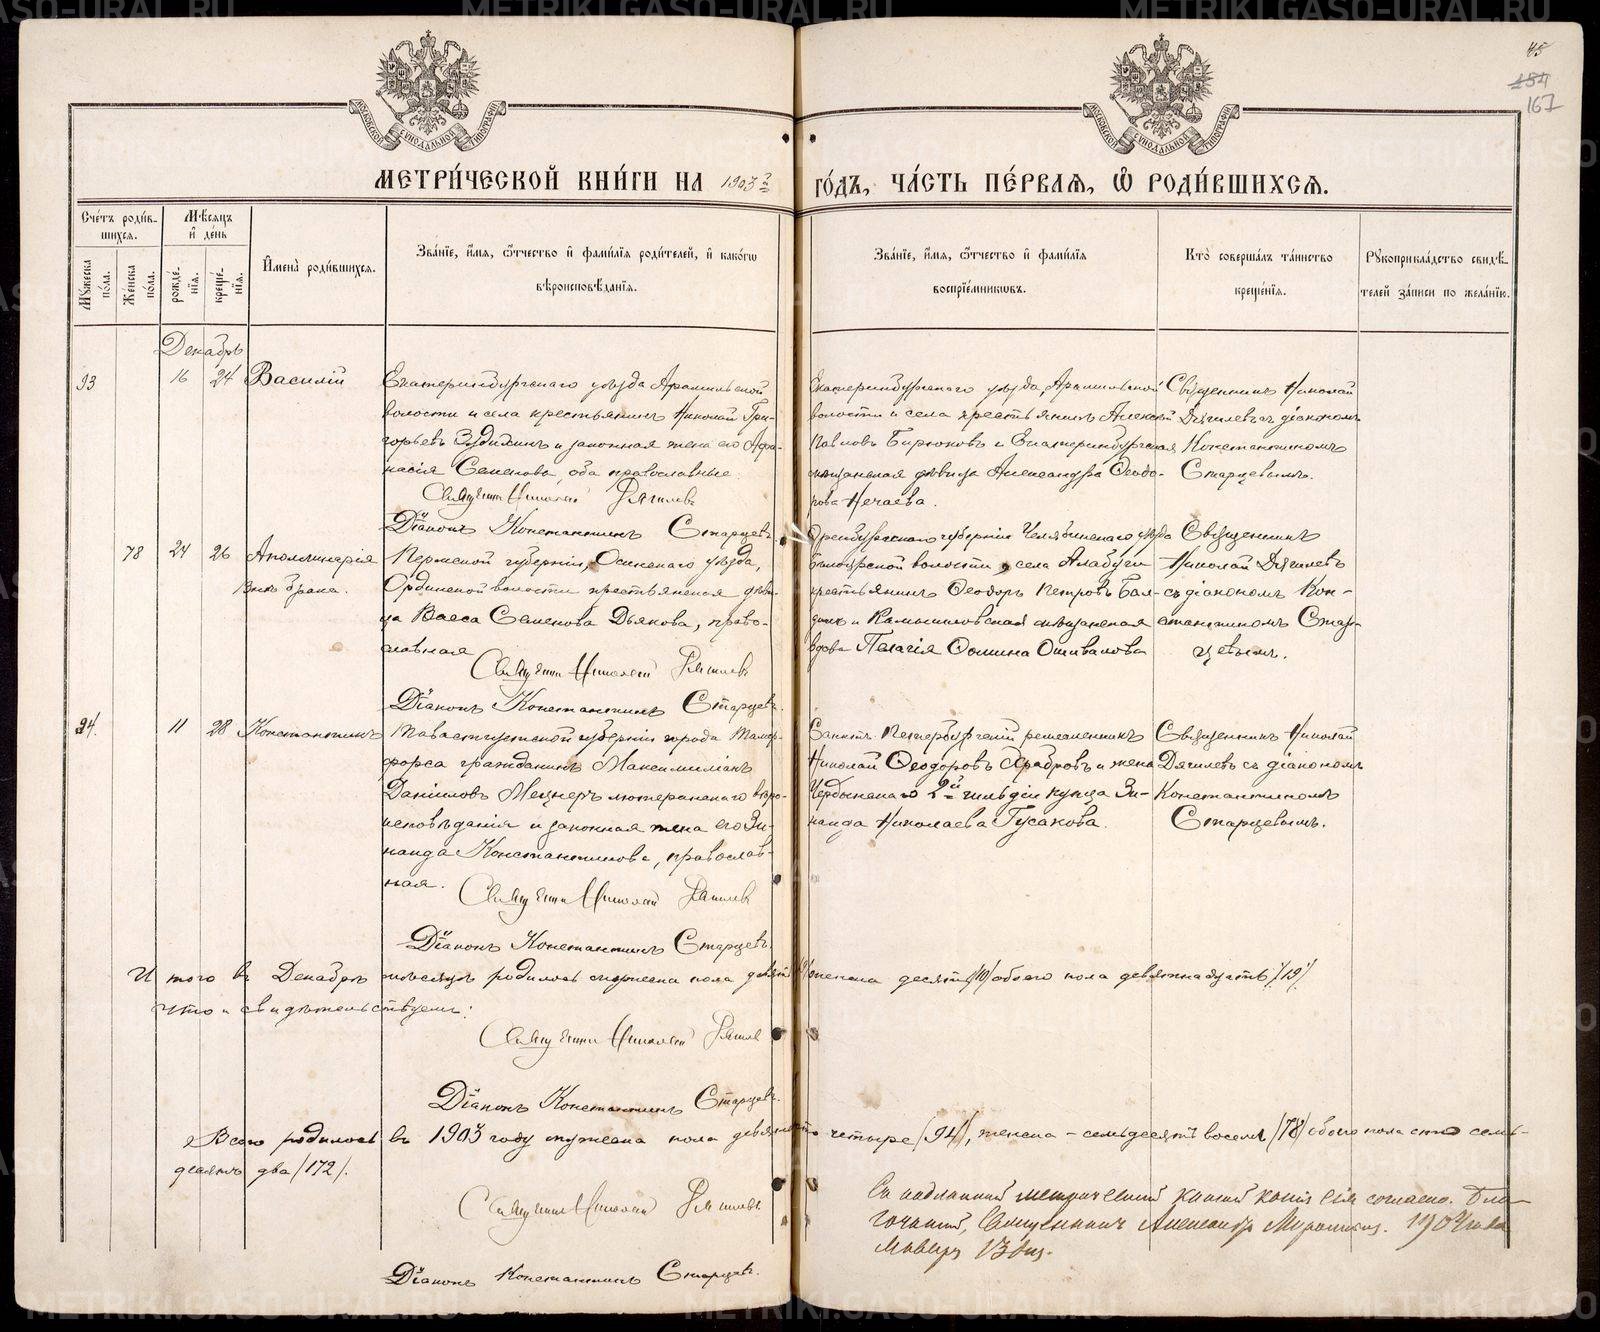 METRIKI.GASO-URAL.RU
45
184
167
МОСКОВСКОЙ СѴНОДАЛЬНОЙ ТИПОГРАФІИ
МОСКОВСКОЙ СѴНОДАЛЬНОЙ ТИПОГРАФІИ
МЕТРИ́ЧЕСКОЙ КНИ́ГИ НА 1903 ГО́ДЪ, ЧА́СТЬ ПЕ́РВАѦ, Ѡ҆ РОДИ́ВШИХСѦ.
Сче́тъ роди́в-
шихсѧ.
Мꙋжеска по́ла.
Же́нска по́ла.
Мѣ́сѧцъ
и҆ де́нь
рожде́-
нїѧ.
креще́-
нїѧ.
И҆мена̀ роди́вшихсѧ.
Зва́нїе, и҆́мѧ, ѻ҆́тчество и҆ фами́лїѧ роди́телей, и҆ како́гѡ
вѣроисповѣ́данїѧ.
Зва́нїе, и҆́мѧ, ѻ҆́тчество и҆ фами́лїѧ
воспрїе́мникѡвъ.
Кто̀ соверша́лъ та́инство
креще́нїѧ.
Рꙋкоприкла́дство свидѣ́-
телей за́писи по жела́нїю.
Декабрь
93 16 24 Василій
Екатеринбургскаго уѣзда Арамильской
волости и села крестьянинъ Николай Гри-
горьевъ Зудихинъ и законная жена его Афа-
насія Семенова, оба православные.
Священникъ Николай Дягилевъ
Діаконъ Константинъ Старцевъ.
Екатеринбургскаго уѣзда, Арамильской
волости и села крестьянинъ Алексѣй
Павловъ Бирюковъ и Екатеринбургская
мѣщанская дѣвица Александра Ѳеодо-
рова Нечаева.
Священникъ Николай
Дягилевъ съ діакономъ
Константиномъ
Старцевымъ.
78 24 26 Аполлинарія
Внѣ брака.
Пермской губерніи, Осинскаго уѣзда,
Ординской волости крестьянская дѣви-
ца Васса Семенова Дьякова, право-
славная
Священникъ Николай Дягилевъ
Діаконъ Константинъ Старцевъ.
Оренбургской губерніи Челябинскаго уѣзда
волости, села Алабуги
крестьянинъ Ѳеодоръ Петровъ
и Камышловская мѣщанская
вдова Пелагія Ѳомина Ошивалова
Священникъ
Николай Дягилевъ
съ діакономъ Кон-
стантиномъ Стар-
цевымъ.
94. 11 28 Константинъ
Тавастгустской губерніи города Тамер-
форса гражданинъ Максимиліанъ
Даніиловъ Мецнеръ лютеранскаго вѣро-
исповѣданія и законная жена его Зи-
наида Константинова, православ-
ная.
Священникъ Николай Дягилевъ
Діаконъ Константинъ Старцевъ.
Санктъ-Петербургскій ремесленникъ
Николай Ѳеодоровъ Храбровъ и жена
Чердынскаго 2й гильдіи купца Зи-
наида Николаева Гусакова.
Священникъ Николай
Дягилевъ съ діакономъ
Константиномъ
Старцевымъ.
Итого въ Декабрѣ мѣсяцѣ родилось мужеска пола девять женска десять /10/ обоего пола девятнадцать /19/
что и свидѣтельствуемъ:
Священникъ Николай Дягилевъ
Діаконъ Константинъ Старцевъ.
Всего родилось въ 1903 году мужеска пола девяносто четыре /94/, женска - семьдесятъ восемь /78/ обоего пола сто семь-
десятъ два /172/.
Священникъ Николай Дягилевъ
Діаконъ Константинъ Старцевъ.
Съ подлинной метрической книгой копія сія согласна. Бла-
гочинный, Священникъ Александръ 1904 года
Января 13 дня.